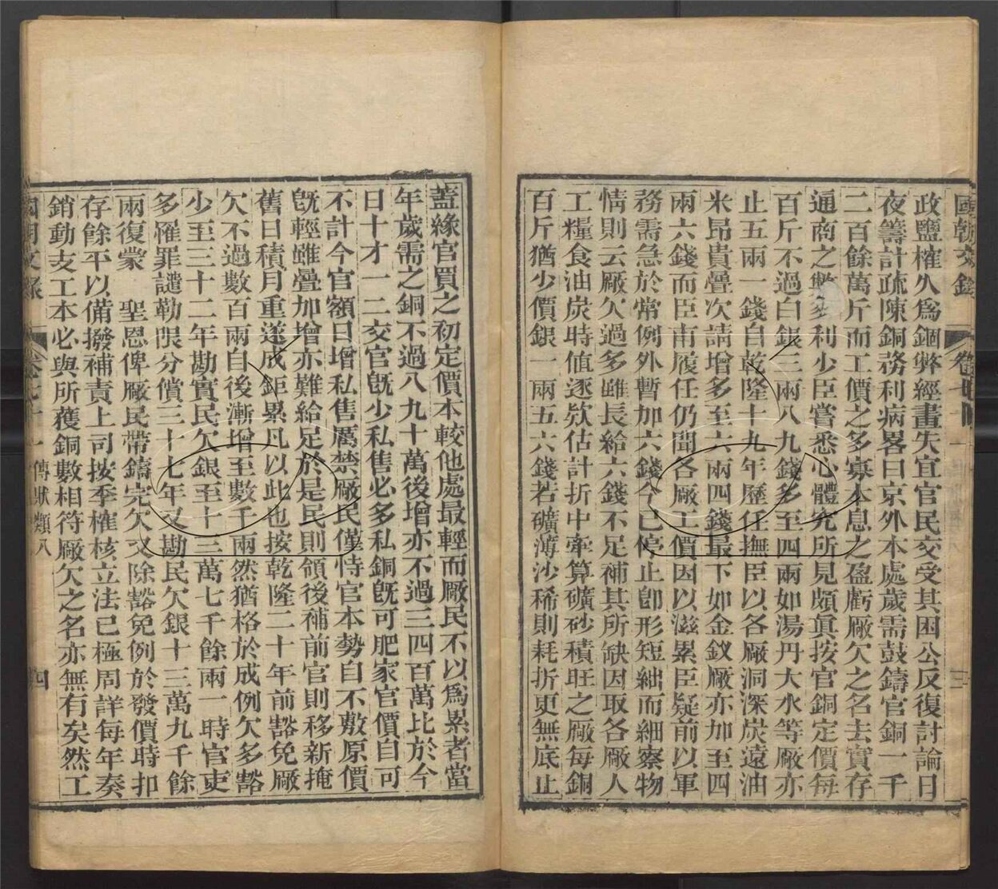 國朝文錄
政鹽榷久爲錮弊經畫失宜官民交受其困公反復討論日
夜籌計疏陳銅務利病畧曰京外本處歲需鼓鑄官銅一千
二百餘萬斤而工價之多寡本息之盈虧厰欠之名去實存
通商之弊多利少臣嘗悉心體究所見頗眞按官銅定價每
百斤不過白銀三兩八九錢多至四兩如湯丹大水等厰亦
止五兩一錢自乾隆十九年歷任撫臣以各厰洞深炭遠油
米昂貴曡次請增多至六兩四錢最下如金釵厰亦加至四
兩六錢而臣甫履任仍聞各厰工價因以滋累臣疑前以軍
務需急於常例外暫加六錢今已停止卽形短絀而細察物
情則云厰欠過多雖長給六錢不足補其所缺因取各厰人
工糧食油炭時值逐欵估計折中牽算礦砂積旺之厰每銅
百斤猶少價銀一兩五六錢若礦薄沙稀則耗折更無底止
蓋緣官買之初定價本較他處最輕而厰民不以爲累者當
年歲需之銅不過八九十萬後增亦不過三四百萬比於今
日十才一二交官旣少私售必多私銅旣可肥家官價自可
不計今官額日增私售厲禁厰民僅恃官本勢自不敷原價
旣輕雖曡加增亦難給足於是民則領後補前官則移新掩
舊日積月重遂成鉅累凡以此也按乾隆二十年前豁免厰
欠不過數百兩自後漸增至數千兩然猶格於成例欠多豁
少至三十二年勘實民欠銀至十三萬七千餘兩一時官吏
多罹罪譴勒限分償三十七年又勘民欠銀十三萬九千餘
兩復蒙　聖恩俾厰民帶鑄完欠又除豁免例於發價時扣
存餘平以備撥補責上司按季榷核立法已極周詳每年奏
銷動支工本必與所獲銅數相符厰欠之名亦無有矣然工
國朝文錄
卷七十一
傳狀類八
四